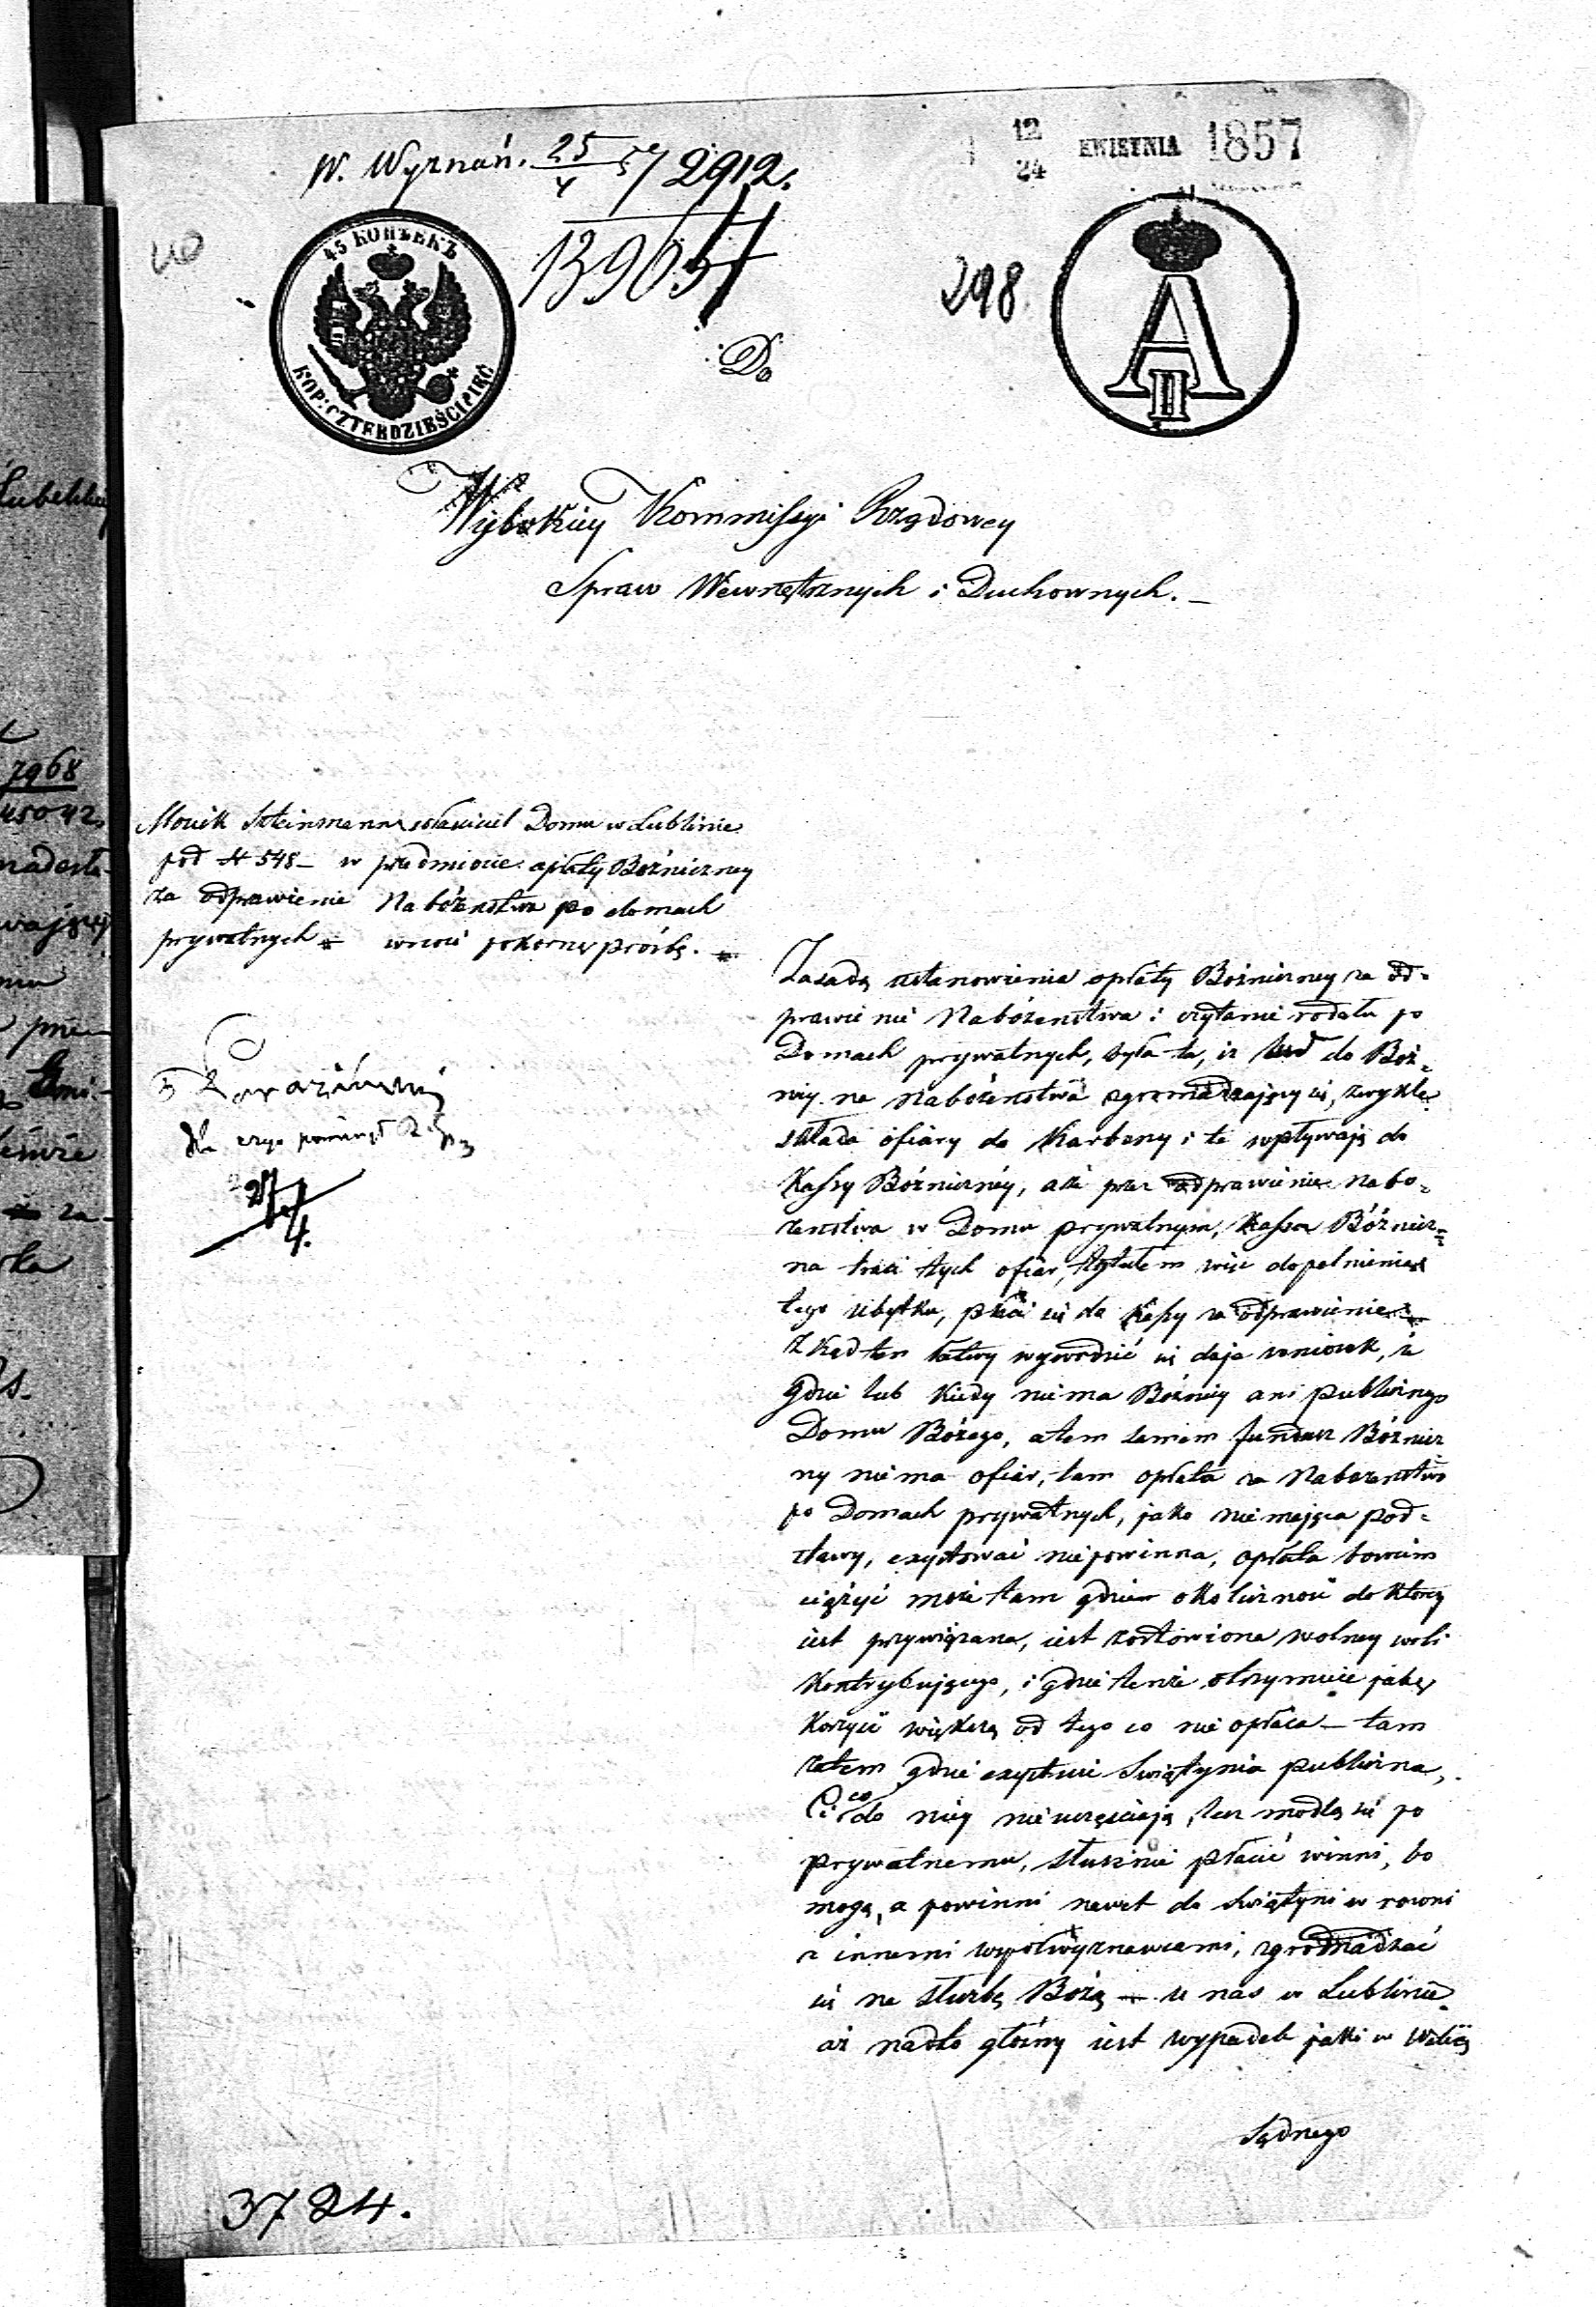 W. Wyznań. 25/4 57 2912.
12/24 KWIETNIA 1857
45 КОПѢЕКЪ
KOP: CZTERDZIEŚCI PIĘĆ
13965
298
A II
Do
Wysokiey Kommissyi Rządowey
Spraw Wewnętrznych i Duchownych. —
Lubelskiey
7968
45042
Moszk Szteinmann właściciel Domu w Lublinie
pod # 548 — w przedmiocie opłaty Bożniczney
za odprawienie Nabożeństwa po domach
prywatnych — wnosi pokorną prośbę. —
27/4.
Zasadą ustanowienia opłaty Bożniczney za od-
prawienie Nabożeństwa i czytanie rodału po
Domach prywatnych, była ta, iż lud do Boż-
nicy na nabożeństwa zgromadzający się, zwykle
składa ofiary do Karbony i te wpływają do
Kassy Bóżniczney, a że przez odprawienie nabo-
żeństwa w Domu prywatnym, Kassa Bóżnicz-
na traci tych ofiar, tytułem więc dopełnienia
tego ubytku, płaci się do Kassy za odprawienie —
Zkąd ten łatwy wywodzić się daje wniosek, że
gdzie lub kiedy niema Bóżnicy ani publicznego
Domu Bożego, a tem samem fundusz Bóżnicz
ny niema ofiar, tam opłata za Nabożeństwo
po Domach prywatnych, jako niemająca pod-
stawy, exystować niepowinna, opłata bowiem
ciążyć może tam gdzie okoliczność do którey
jest przywiązana, jest zostawiona wolney woli
Kontrybującego, i gdzie tenże otrzymuje jakąś
korzyść większą od tego co nie opłaca — tam
zatem gdzie exystuie Swiątynia publiczna,
Ci co do niey nieuczęściają, lecz modlą się po
prywatnemu, słusznie płacić winni, bo
mogą, a powinni nawet do Świątyni w rowni
z innemi wspołwyznawcami, zgromadzać
się na służbę Bożą — U nas w Lublinie
aż nadto głośny jest wypadek jaki w Wilią
Sądnego
3724.